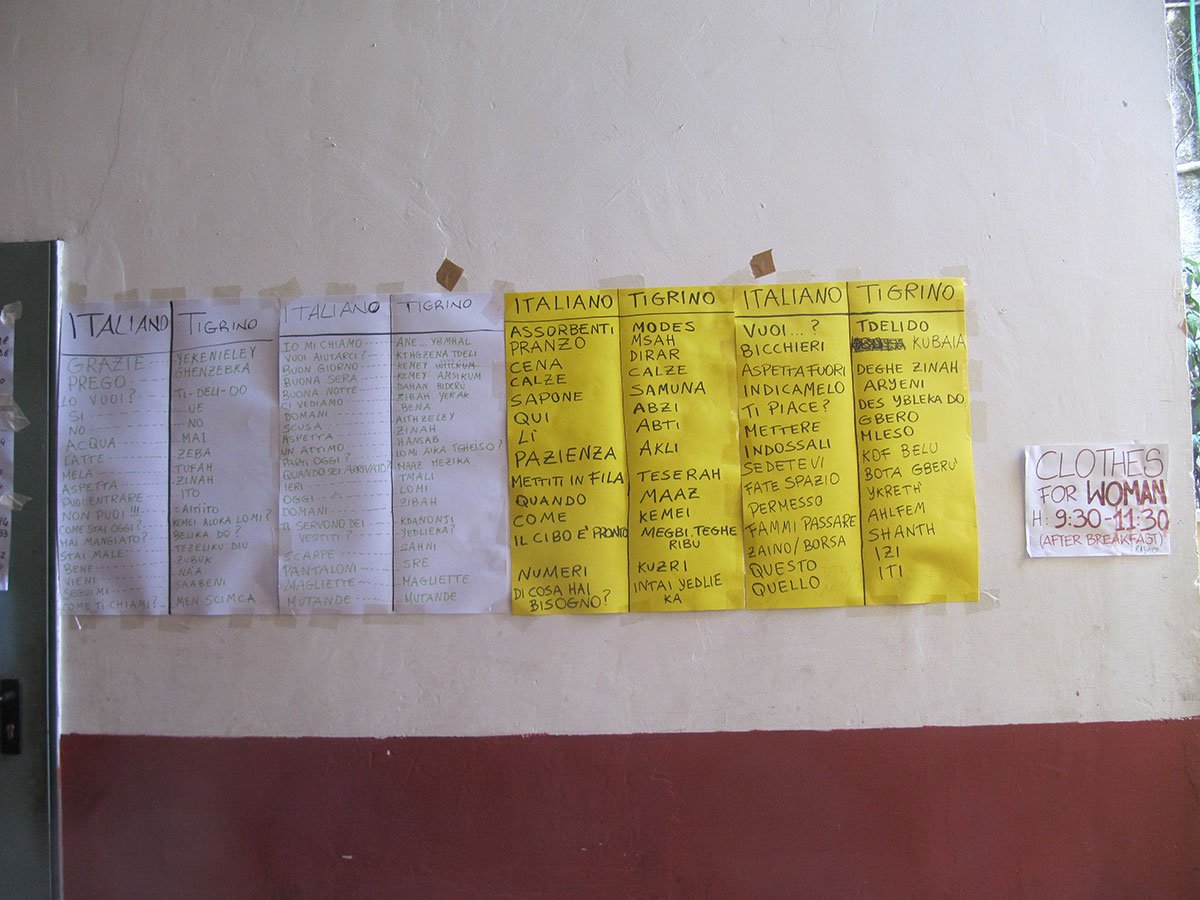 ITALIANO
GRAZIE
PREGO
LO VUOI?
SI
NO
ACQUA
LATTE
MELA
ASPETTA
PUOI ENTRARE
NON PUOI !!!
COME STAI OGGI?
HAI MANGIATO?
STAI MALE
BENE
VIENI
SEGUIMI
COME TI CHIAMI?
TIGRINO
YEKENIELEY
GHENZEBKA
TI-DELI-DO
UE
NO
MAI
ZEBA
TUFAH
ZINAH
ITO
AITIITO
KEMEI ALOKA LOMI?
BELIKA DO?
TEZELIKU DIU
ZUBUK
NAA
SAABENI
MEN SCIMCA
ITALIANO
IO MI CHIAMO
VUOI AIUTARCI?
BUON GIORNO
BUONA SERA
BUONA NOTTE
CI VEDIAMO
DOMANI
SCUSA
ASPETTA
UN ATTIMO
PARTI OGGI?
QUANDO SEI ARRIVATO?
IERI
OGGI
DOMANI
TI SERVONO DEI
VESTITI?
SCARPE
PANTALONI
MAGLIETTE
MUTANDE
TIGRINO
ANE... YBMHAL
KTHGZENA TDELI
KEMEY
KEMEY AMSIKUM
DAHAN HIDERU
ZIBAH YERAK
BENA
AITHZELEY
ZINAH
HANSAB
LOMI AIKA TGHEISO?
MAAZ MEZIKA
TMALI
LOMI
ZIBAH
KDANONTI
YEDLIEKA?
SAHNI
SRE
MAGLIETTE
MUTANDE
ITALIANO
ASSORBENTI
PRANZO
CENA
CALZE
SAPONE
QUI
LÌ
PAZIENZA
METTITI IN FILA
QUANDO
COME
IL CIBO E' PRONTO
NUMERI
DI COSA HAI
BISOGNO?
TIGRINO
MODES
MSAH
DIRAR
CALZE
SAMUNA
ABZI
ABTI
AKLI
TESERAH
MAAZ
KEMEI
MEGBI TEGHE
RIBU
KUZRI
INTAI YEDLIE
KA
ITALIANO
VUOI...?
BICCHIERI
ASPETTA FUORI
INDICAMELO
TI PIACE?
METTERE
INDOSSALI
SEDETEVI
FATE SPAZIO
PERMESSO
FAMMI PASSARE
ZAINO/BORSA
QUESTO
QUELLO
TIGRINO
TDELIDO
KUBAIA
DEGHE ZINAH
ARYENI
DES YBLEKA DO
GBERO
MLESO
KOF BELU
BOTA GBERU'
YKRETH'
AHLFEM
SHANTH
IZI
ITI
CLOTHES
FOR WOMAN
H: 9:30-11:30
(AFTER BREAKFAST)